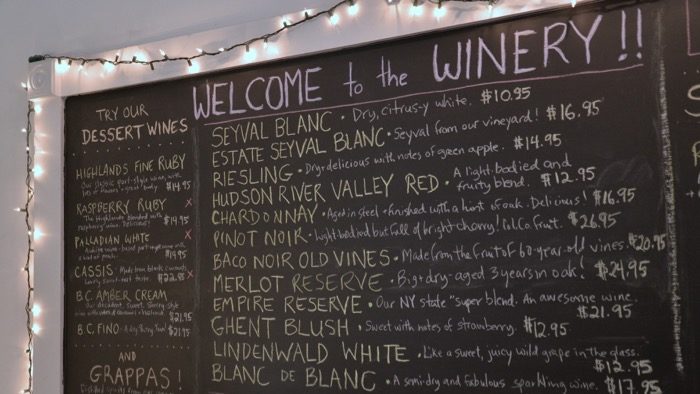 WELCOME to the WINERY!!
TRY OUR
DESSERT WINES
HIGHLANDS FINE RUBY
Our classic port-style wine, with
$14.95
RASPBERRY RUBY x
The Highlands blended with
raspberry wine. Delicious!
$14.95
PALLADIAN WHITE x
of peach. $19.95
CASSIS · Made from black currants x
$22.95
B.C. AMBER CREAM
Our decadent, sweet, sherry-style
$21.95
B.C. FINO
$21.95
AND
GRAPPAS!
SEYVAL BLANC · Dry, citrus-y white. $10.95
ESTATE SEYVAL BLANC · Seyval from our vineyard! $16.95
RIESLING · Dry + delicious with notes of green apple. $14.95
HUDSON RIVER VALLEY RED · A light-bodied and
fruity blend. $12.95
CHARDONNAY · Aged in steel + finished with a hint of oak. Delicious! $16.95
PINOT NOIR · Light-bodied but full of bright cherry! fruit. $26.95
BACO NOIR OLD VINES · Made from the fruit of 60-year-old vines. $20.95
MERLOT RESERVE · Big + dry - aged 3 years in oak! $24.95
EMPIRE RESERVE · Our NY state "super blend. An awesome wine.
$21.95
GHENT BLUSH · Sweet with notes of strawberry. $12.95
LINDENWALD WHITE · Like a sweet, juicy wild grape in the glass.
$12.95
BLANC DE BLANC · A semi-dry and fabulous sparkling wine. $17.95